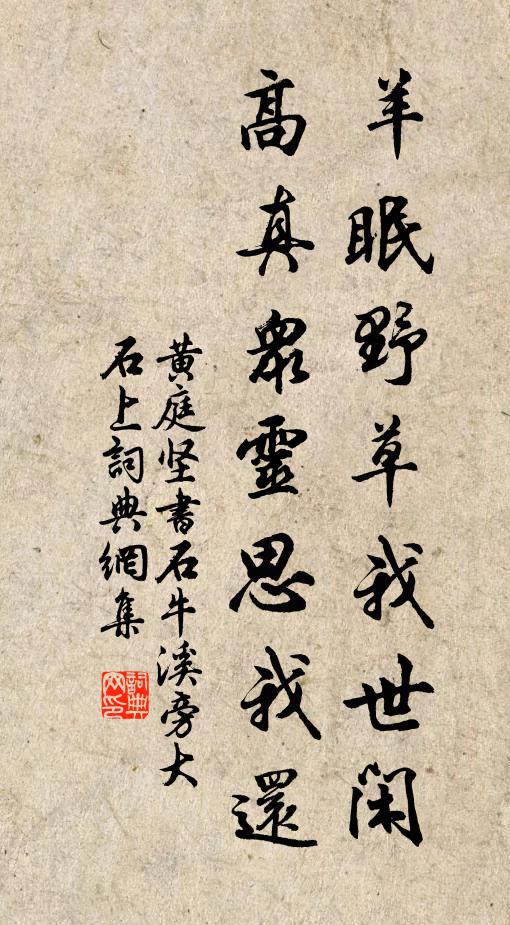 羊眠野草我世閑
高真眾靈思我還
黄庭坚書石牛溪旁大
石上詞典網集
詞典网印